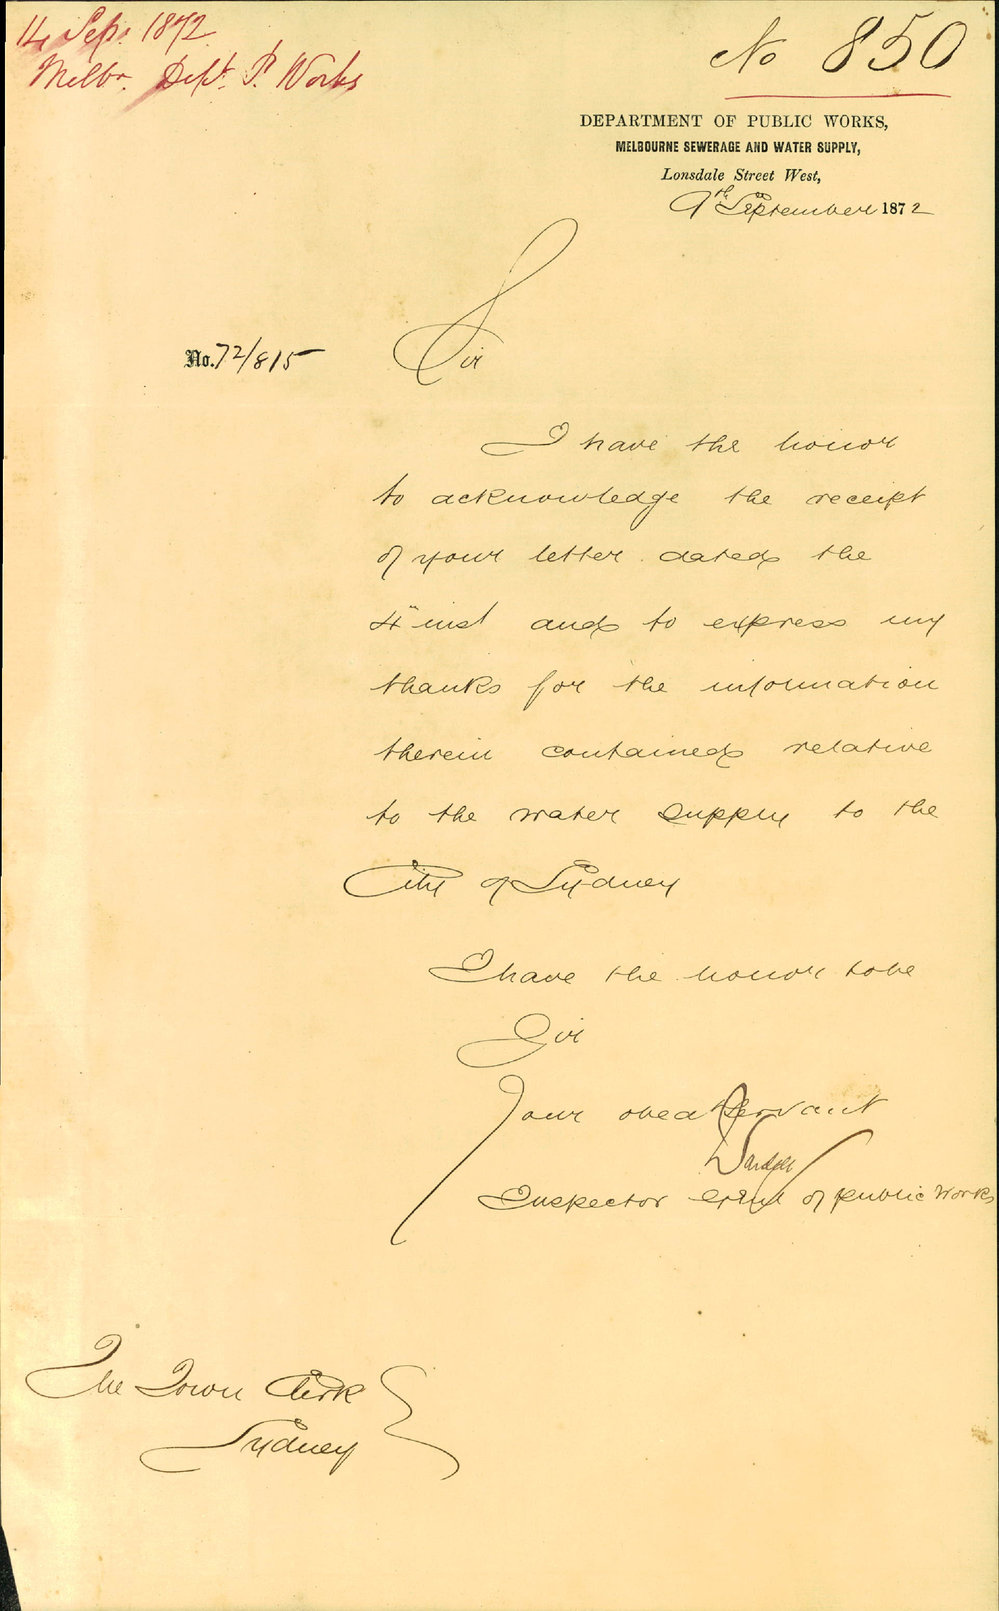 14 Sep. 1872
Melbr. Dept. P. Works
No 850
DEPARTMENT OF PUBLIC WORKS,
MELBOURNE SEWERAGE AND WATER SUPPLY,
Lonsdale Street West,
9th September 1872
No. 72/815
Sir
I have the honor
to acknowledge the receipt
of your letter dated the
4" inst and to express my
thanks for the information
therein contained relative
to the water supply to the
City of Sydney
I have the honor to be
Sir
Your obedt Servant
Inspector Genl of Public Works
The Town Clerk
Sydney